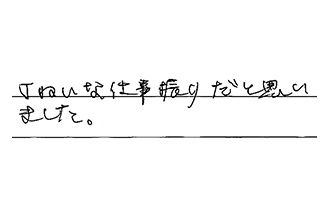 丁ねいな仕事振りだと思い
ました。